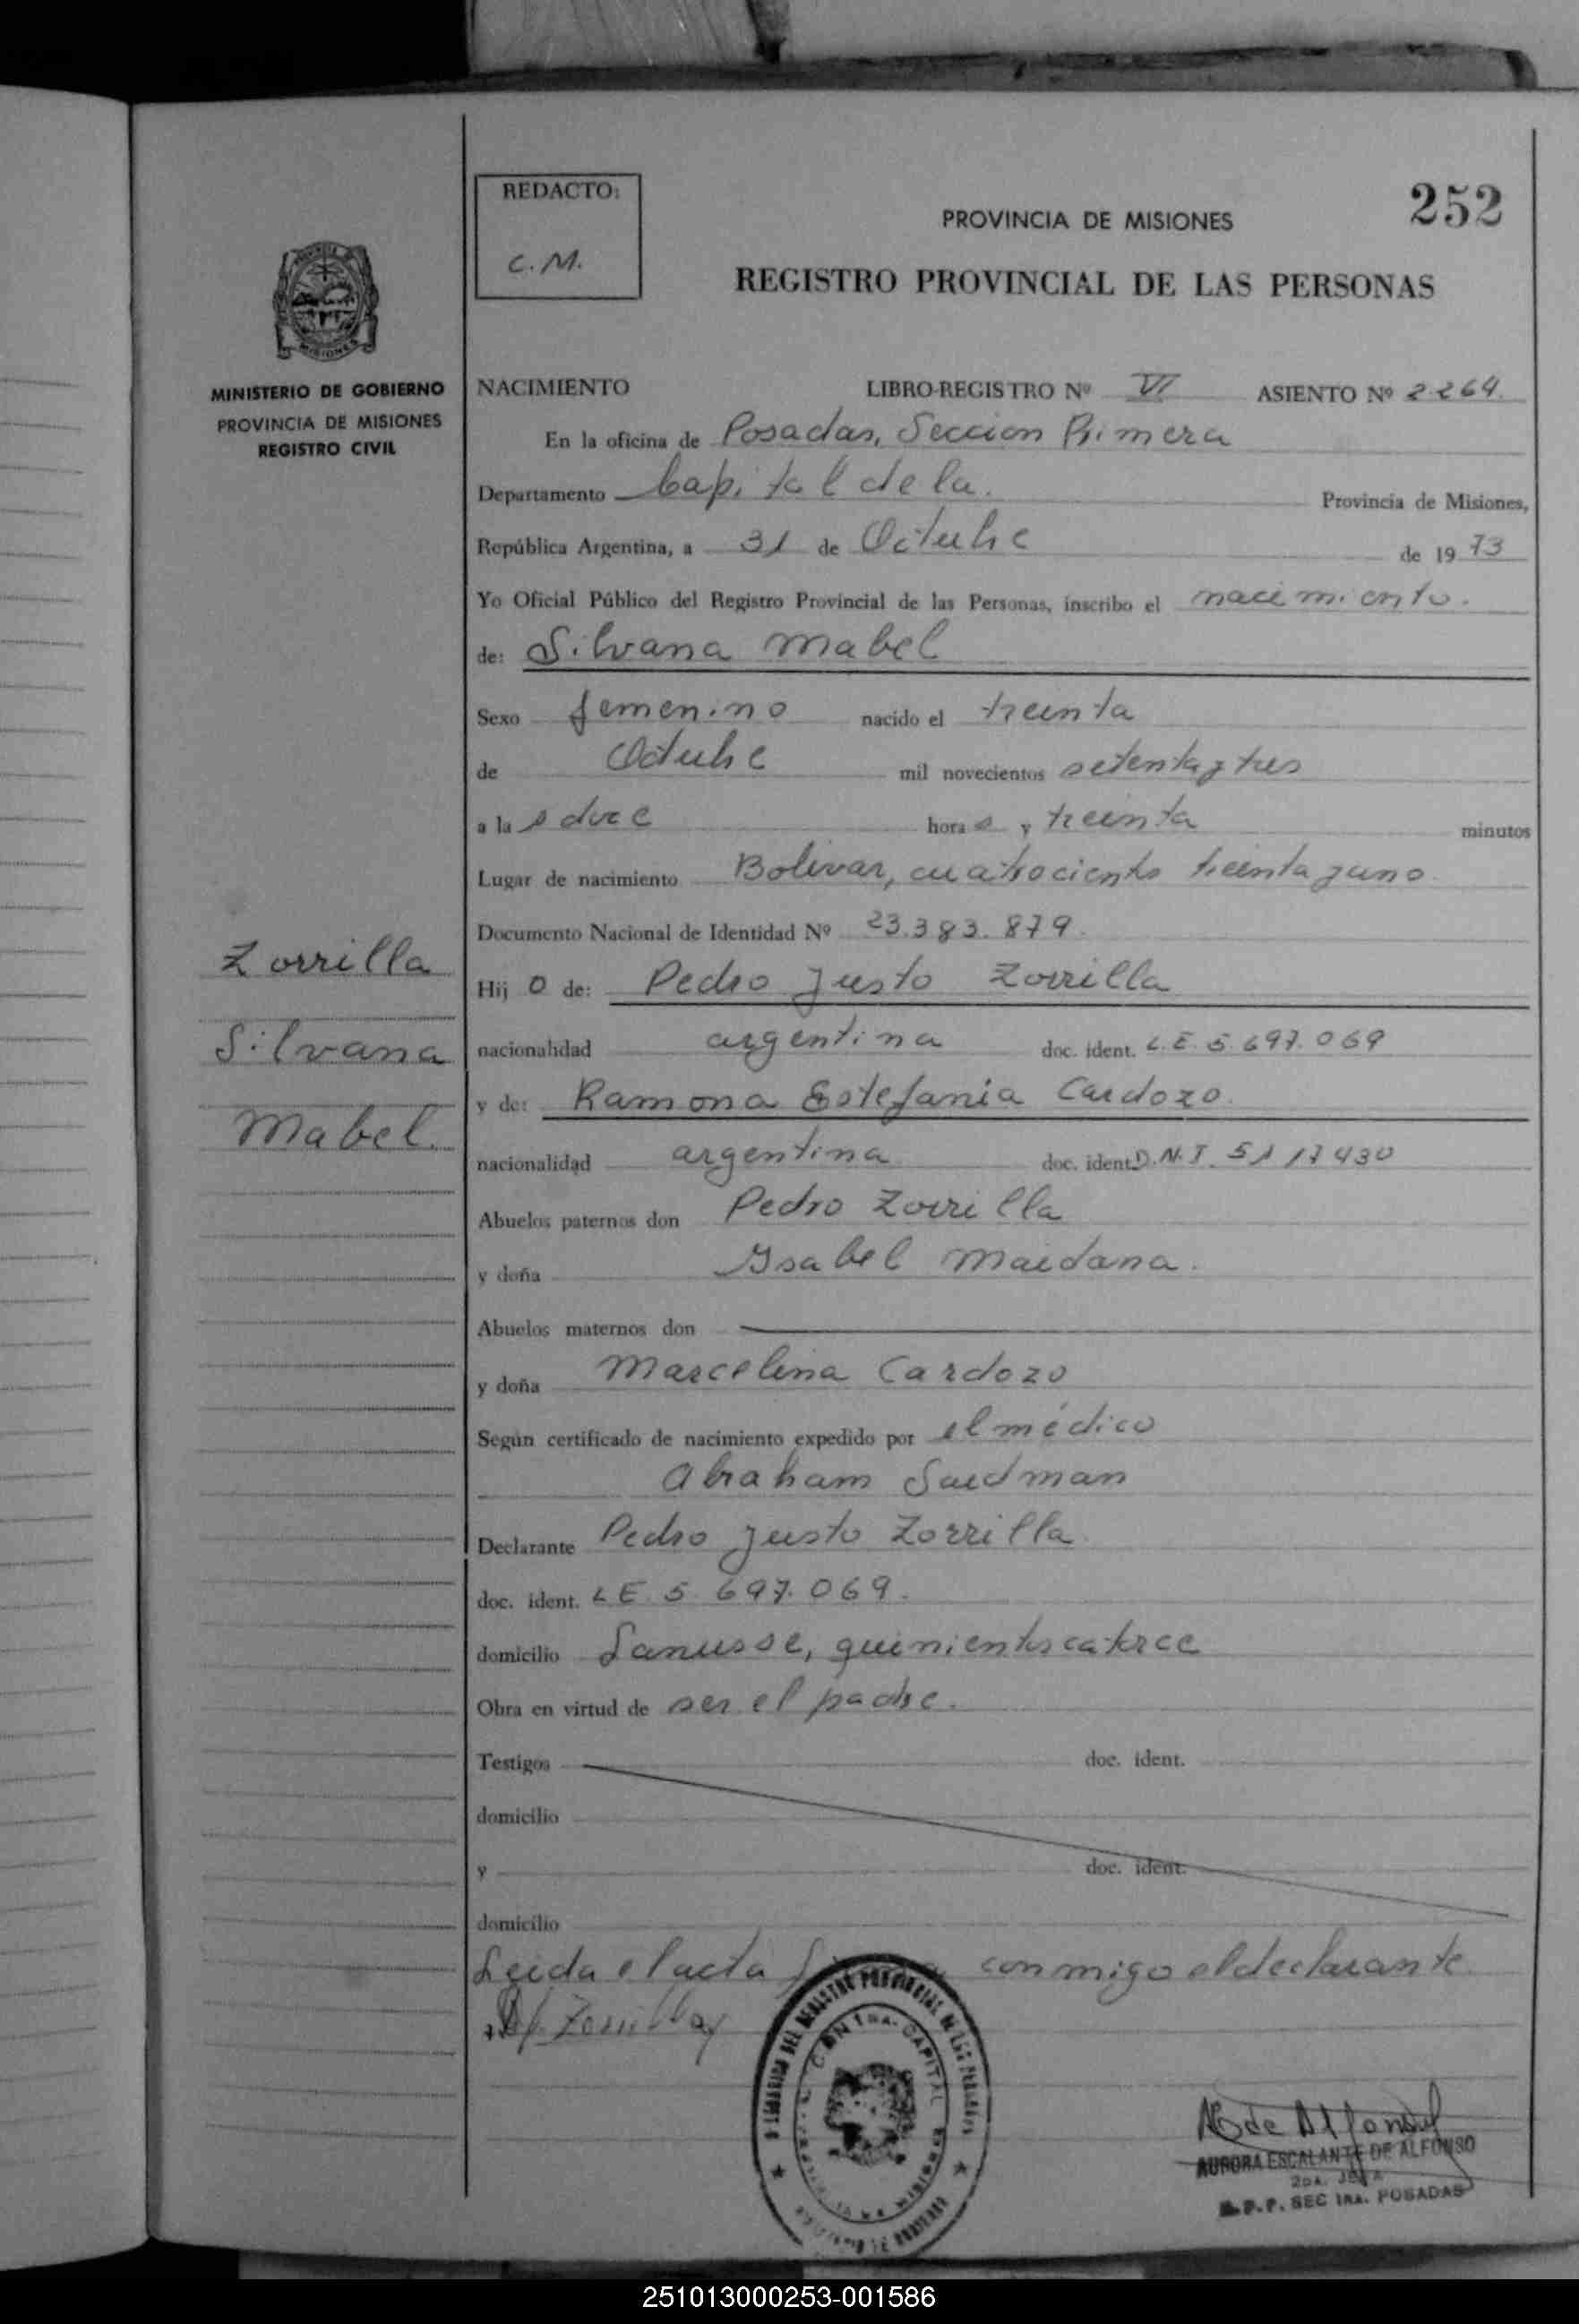 252
REDACTO:
C. M.
PROVINCIA DE MISIONES
REGISTRO PROVINCIAL DE LAS PERSONAS
MISIONES
MINISTERIO DE GOBIERNO
PROVINCIA DE MISIONES
REGISTRO CIVIL
NACIMIENTO LIBRO-REGISTRO Nº VI ASIENTO Nº 2264
En la oficina de Posadas, Seccion Primera
Departamento Capital de la. Provincia de Misiones,
República Argentina, a 31 de Octubre de 1973
Yo Oficial Público del Registro Provincial de las Personas, inscribo el nacimiento.
de: Silvana Mabel
Sexo femenino nacido el treinta
de Octubre mil novecientos setenta y tres
a la s doce hora s y treinta minutos
Lugar de nacimiento Bolivar, cuatrociento treinta y uno
Documento Nacional de Identidad Nº 23.383.879.
Zorrilla
Silvana
Mabel.
Hij o de: Pedro Justo Zorrilla
nacionalidad argentina doc. ident. L.E. 5.697.069
y de: Ramona Estefania Cardozo.
nacionalidad argentina doc. ident. D.N.I. 5117430
Abuelos paternos don Pedro Zorrilla
y doña Ysabel Maidana.
Abuelos maternos don
y doña Marcelina Cardozo
Según certificado de nacimiento expedido por el médico
Abraham Saidman
Declarante Pedro Justo Zorrilla.
doc. ident. LE 5.697.069.
domicilio Lanusse, quinientos catorce
Obra en virtud de ser el padre.
Testigos doc. ident.
domicilio
y doc. ident.
domicilio
Leida el acta conmigo el declarante.
Zorrilla
CAPITAL
AURORA ESCALANTE DE ALFONSO
2DA. JEFA
R.P.P. SEC 1RA. POSADAS
251013000253-001586